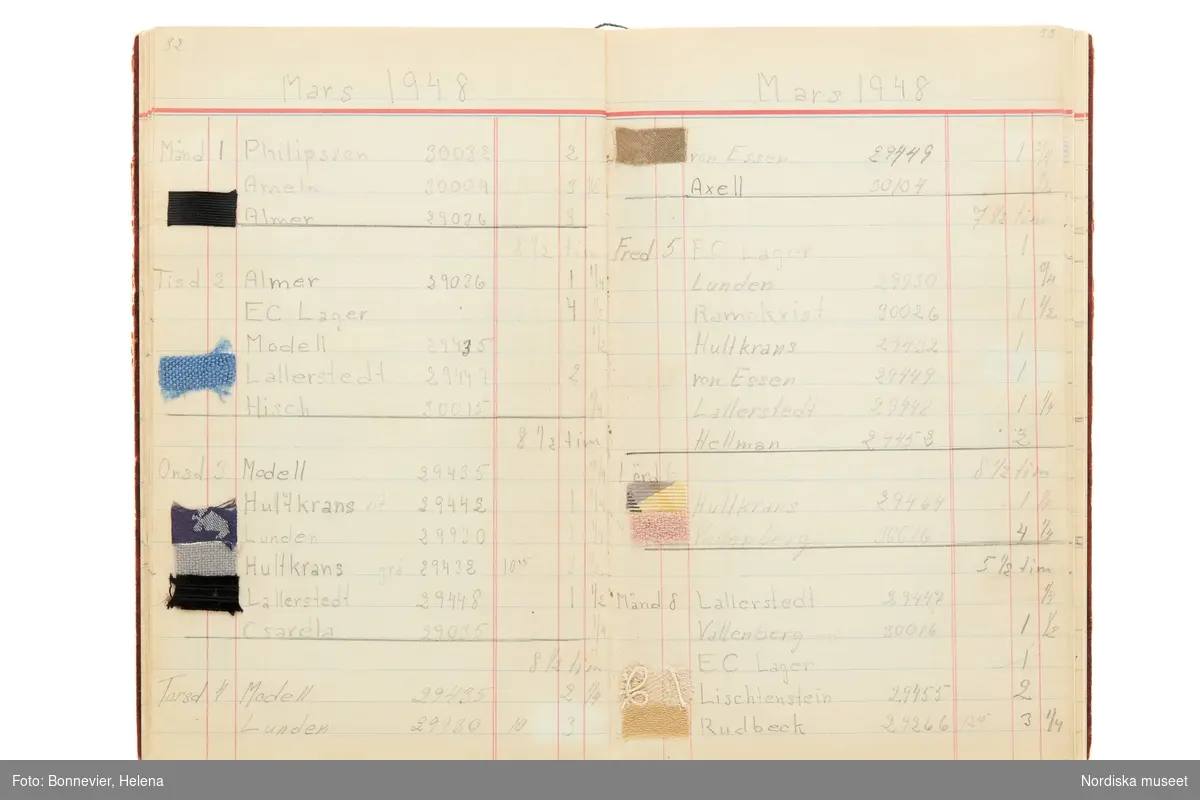 32
Mars 1948
Månd 1 Philipsson 30032 2
Ameln 30009 3
Almer 29036 2
8 1/2 tim
Tisd 2 Almer 29036 1 1/4
EC Lager 4 1/2
Modell 29435 1/2
Lallerstedt 29447 2
Hisch 30015 1/4
8 1/2 tim
Onsd 3 Modell 29435
Hultkrans 29442 1 1/4
Lunden 29930 1 1/4
Hultkrans grå 29432
Lallerstedt 29448 1 1/2
Csarela 29035 1/4
8 1/2 tim
Torsd 4 Modell 29435 2 1/4
Lunden 29930 10 3
33
Mars 1948
von Essen 29449 1
Axell 30104
7 1/2 tim
Fred 5 EC Lager 1
Lunden 29930
Ramnkvist 30026 1 1/2
Hultkrans 29432 1
von Essen 29449 1
Lallerstedt 29448 1 1/4
Hellman 29453 2
8 1/2 tim
Lörd 6
Hultkrans 29464 1
Vallenberg 30016 4 1/4
5 1/2 tim
Månd 8 Lallerstedt 29447
Vallenberg 30016 1 1/2
EC Lager 1
Lischtenstein 29455 2
Rudbeck 29266 3 1/4
Foto: Bonnevier, Helena
Nordiska museet